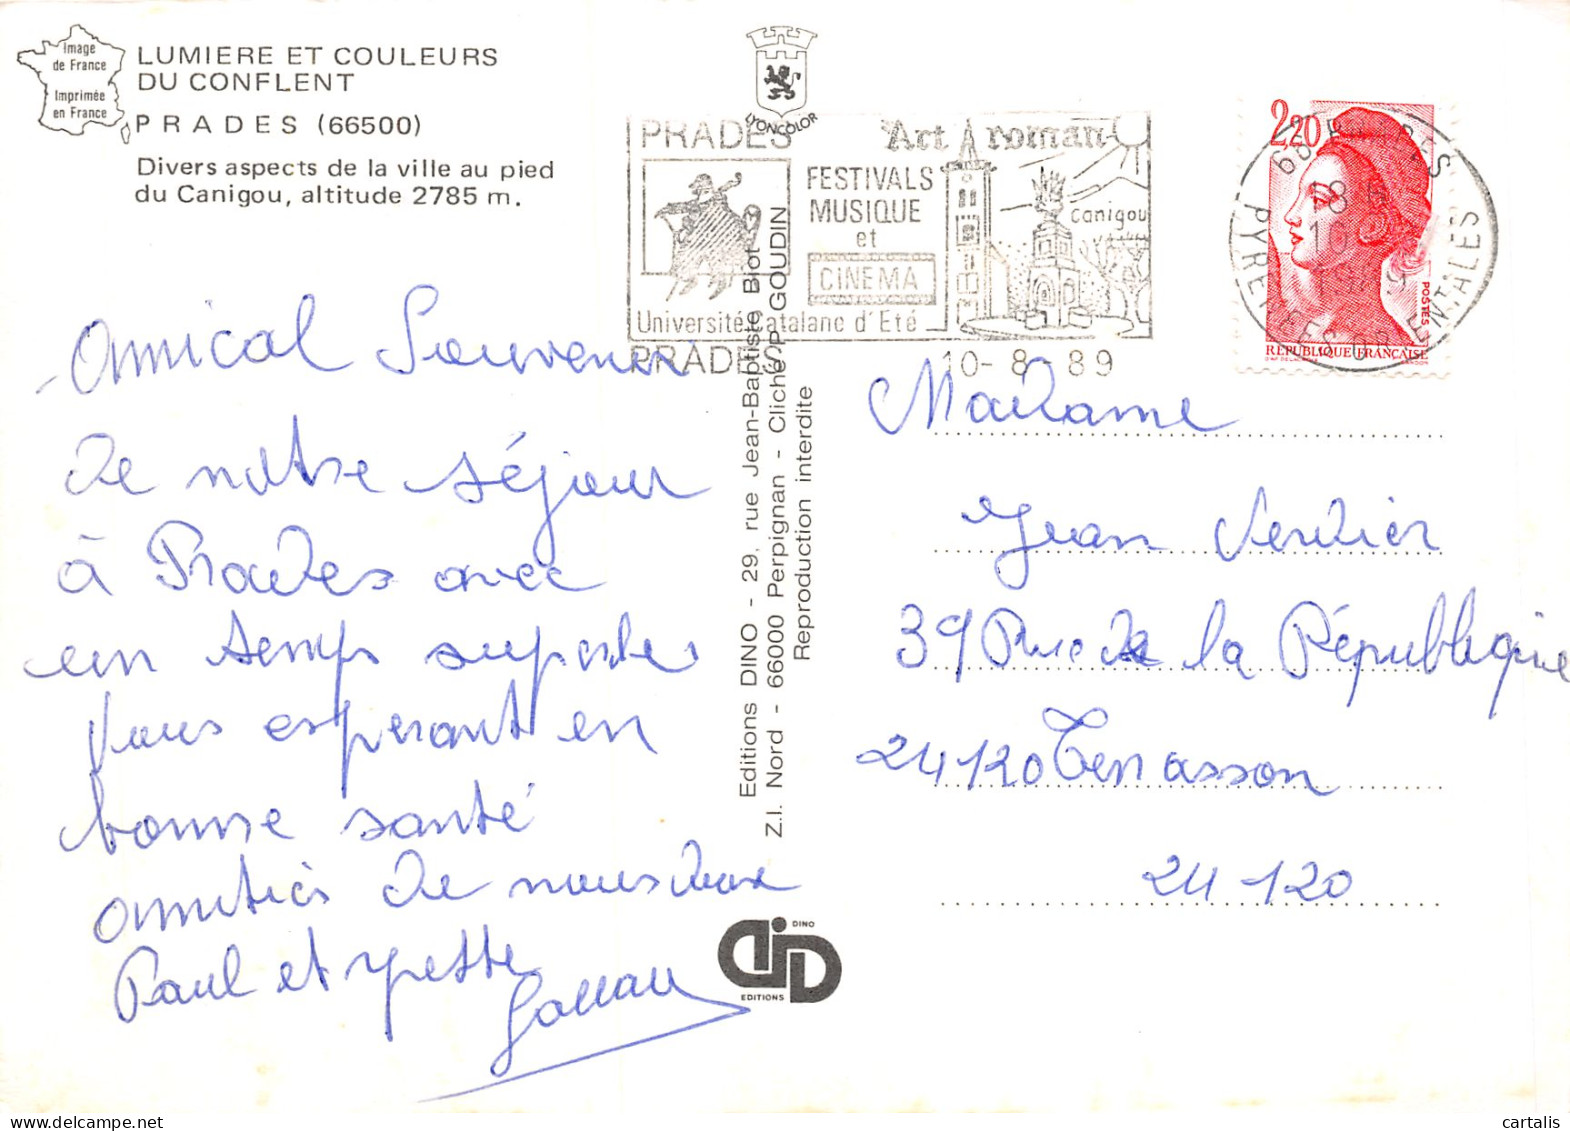 Image
de France
Imprimée
en France
LUMIERE ET COULEURS
DU CONFLENT
PRADES (66500)
Divers aspects de la ville au pied
du Canigou, altitude 2785 m.
Amical Souvenir
de notre séjour
à Prades avec
un temps superbe
Vous espérant en
bonne santé
amitiés de nous deux
Paul et Yvette
LYONCOLOR
PRADES
Art roman
FESTIVALS
MUSIQUE
et
CINEMA
Canigou
Université Catalane d'Eté
PRADES
10-8-89
Editions DINO - 29, rue Jean-Baptiste Biot
Z.I. Nord - 66000 Perpignan - Cliché P. GOUDIN
Reproduction interdite
DINO
EDITIONS
2,20
POSTES
REPUBLIQUE FRANCAISE
66 PRADES
18 H
10-8
1989
PYRENEES ORIENTALES
Madame
Jean Verdier
39 Rue de la République
24120 Terrasson
24 120
cartalis